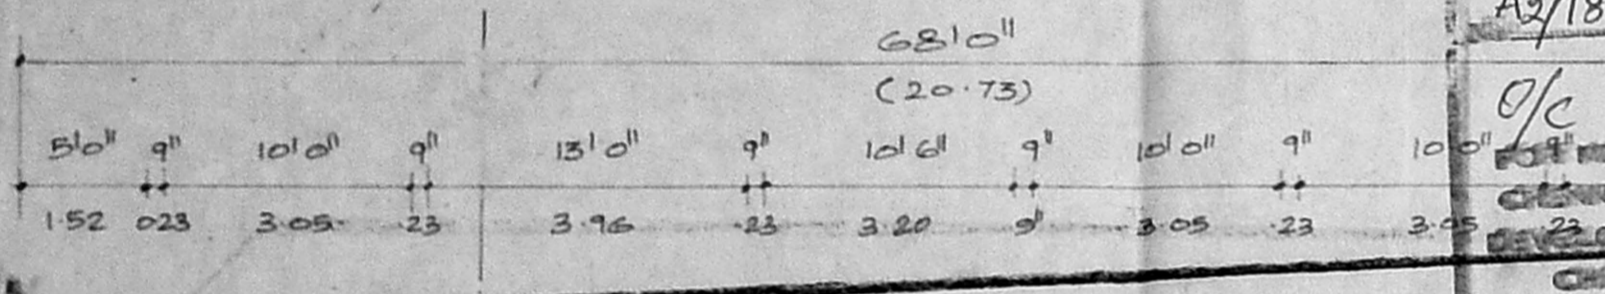 A2/18
68'0"
(20.73)
O/C
5'0" 9" 10'0" 9" 13'0" 9" 10'6" 9" 10'0" 9" 10'0" 9"
1.52 023 3.05 .23 3.96 .23 3.20 9" 3.05 .23 3.05 .23